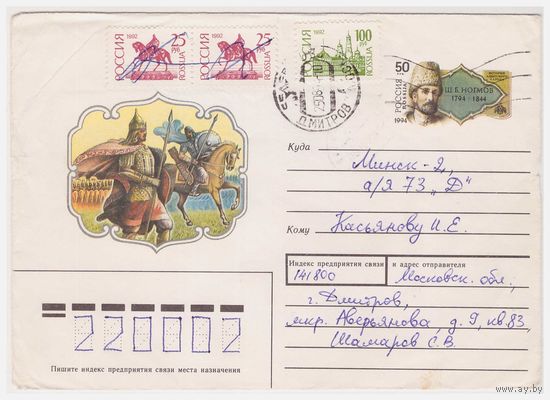 РОССИЯ 1992 25 РУБ ROSSIJA
РОССИЯ 1992 25 РУБ ROSSIJA
РОССИЯ 1992 100 РУБ ROSSIJA
ДМИТРОВ
50
РОССИЯ
1994
Ш.Б. НОГМОВ
1794 - 1844
Куда
Минск-2,
а/я 73 „Д“
Кому
Касьянову И.Е.
Индекс предприятия связи и адрес отправителя
141800 Московск. обл.,
г. Дмитров,
мкр. Аверьянова, д. 9, кв. 83,
Шамаров С.В.
220002
Пишите индекс предприятия связи места назначения
www.ay.by